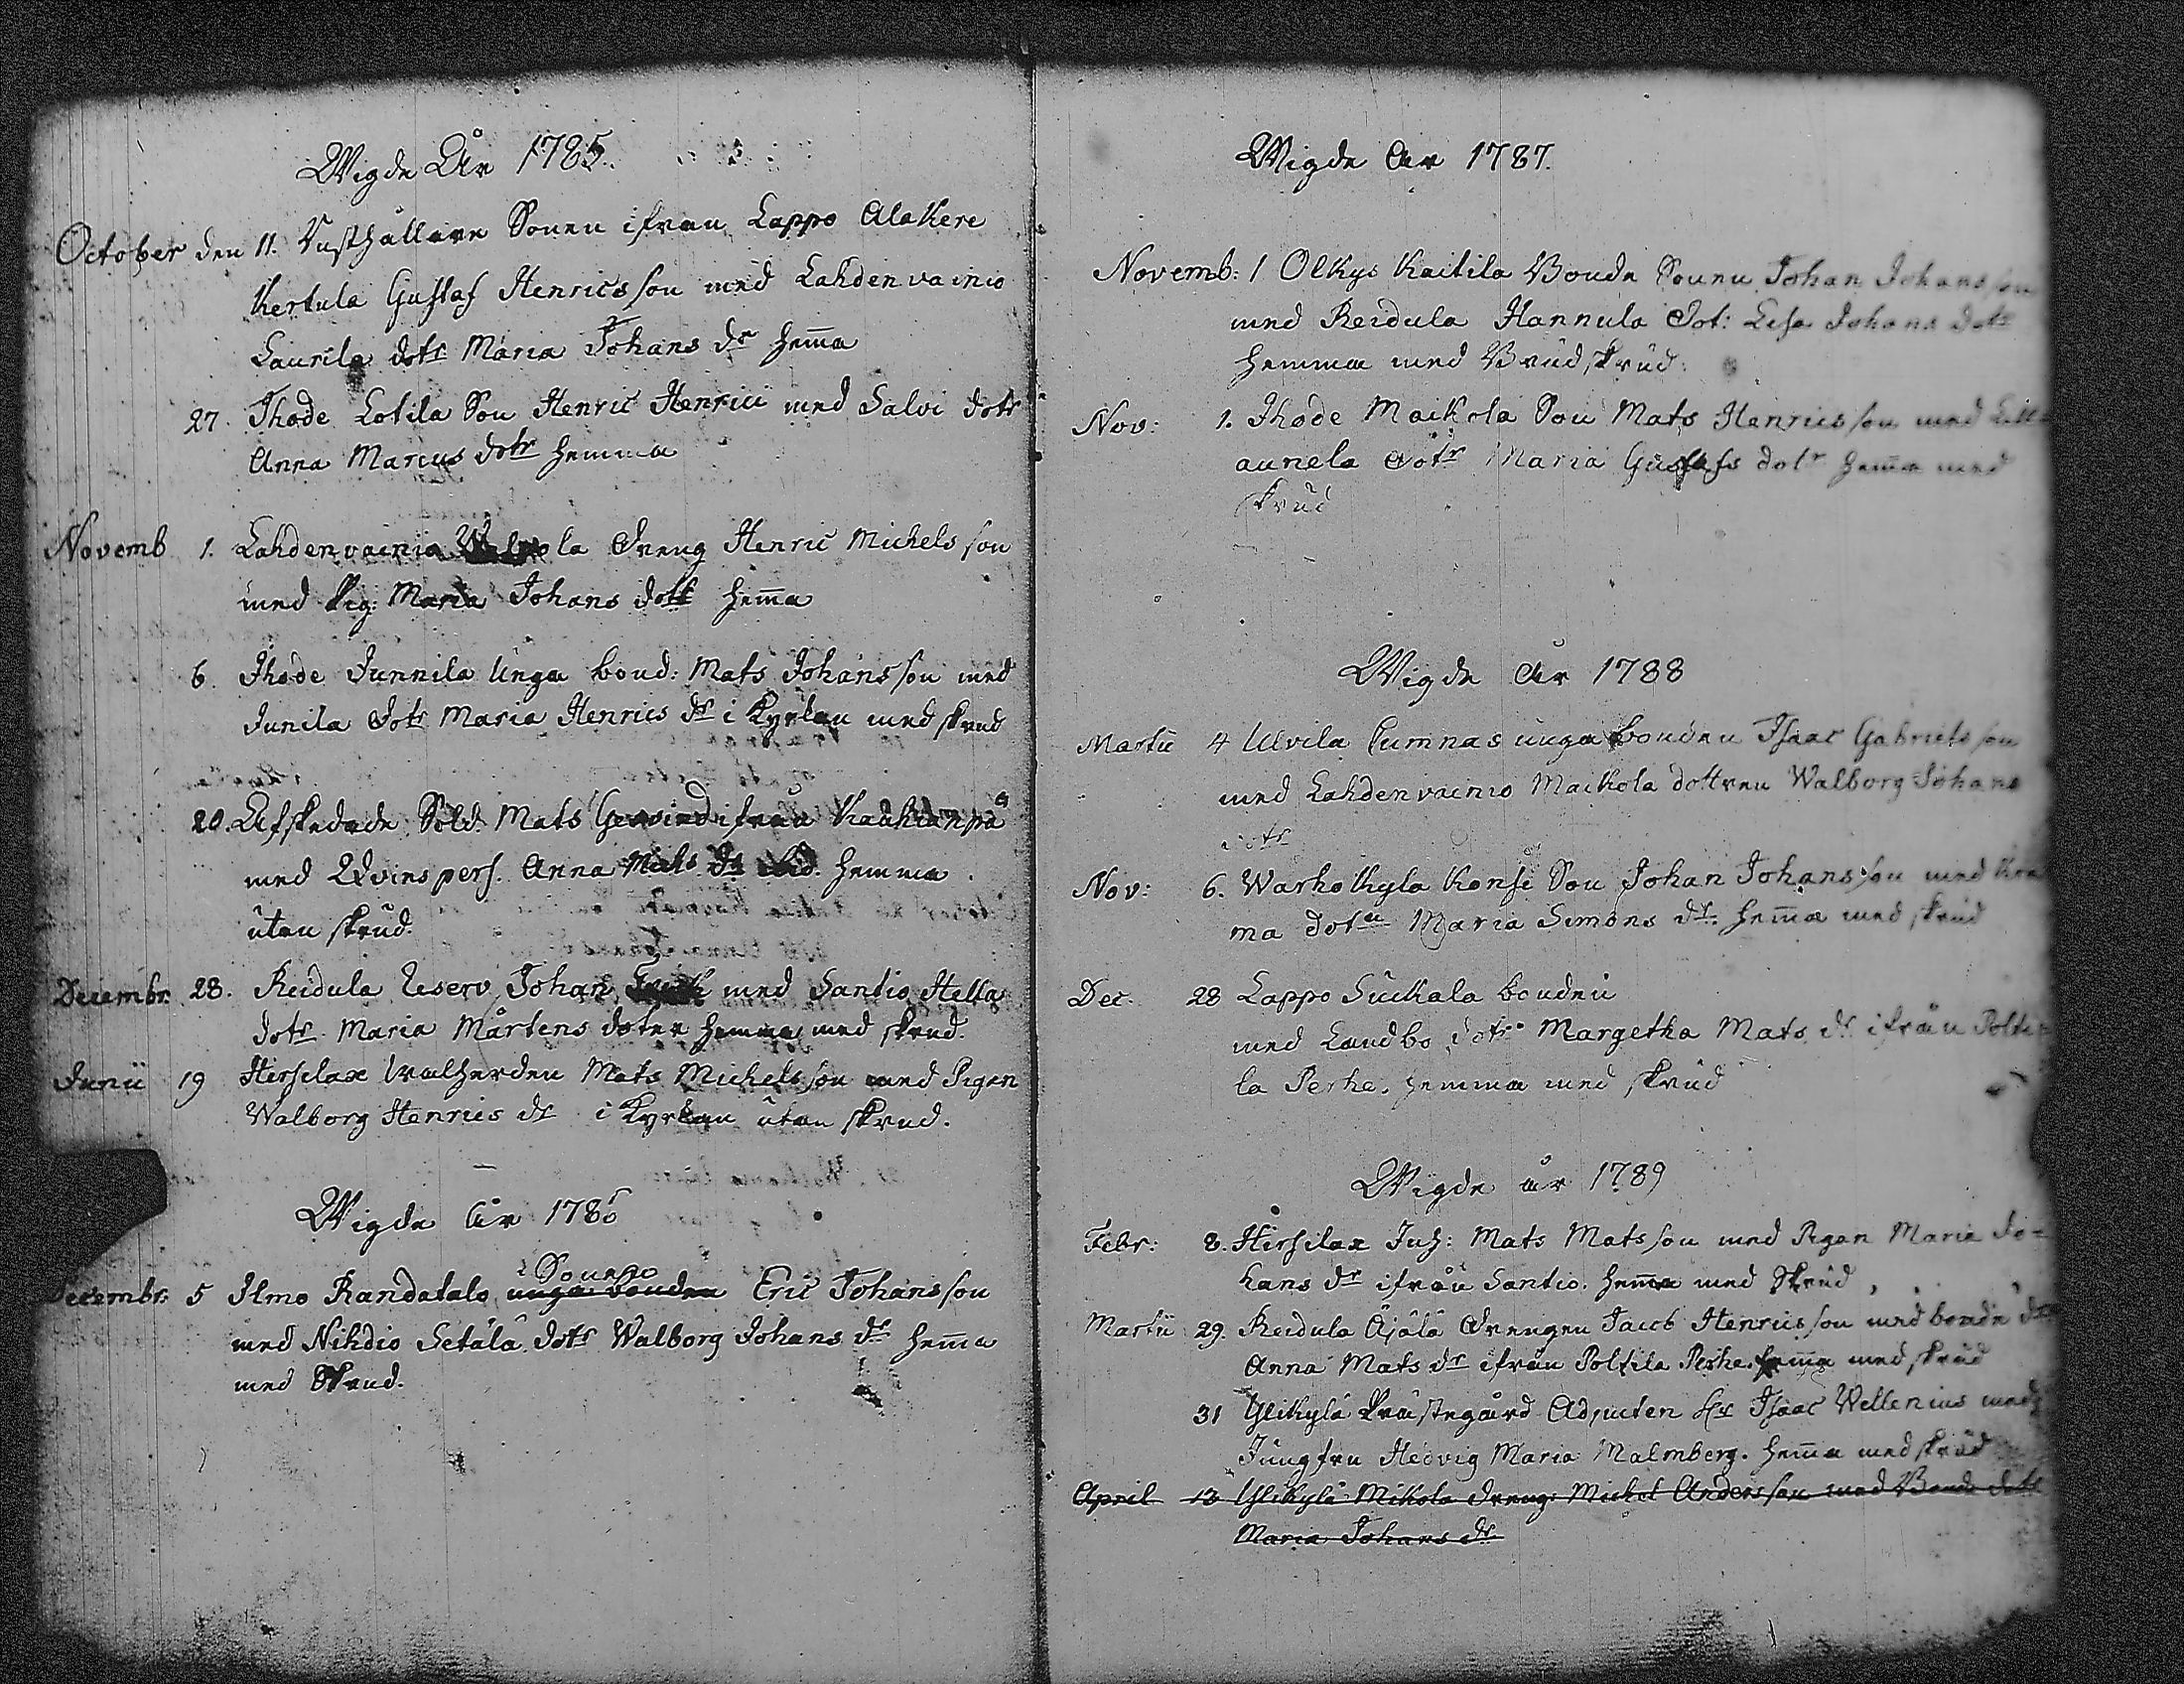 Wigde År 1785.
October den 11. Rusthållare Sonen ifrån Lappo Alakere
Kertula Gustaf Henricsson med Lahdenvainio
Laurila dotr Maria Johans dr hem̄a
27. Thode Lotila Son Henric Henrici med Salvi dotr
Anna Marcus dotr hemma
Novemb 1. Lahdenvainio la dreng Henric Michelsson
med Pig: Maria Johans dotr hem̄a
6. Thode Junnila Unga bond: Mats Johansson med
Junila dotr Maria Henrics dr i Kyrkan med skrud
20. Afskedade Sold. Mats ifrån Kauhianpä
med Qvinspers. Anna Mats dr ibid. hemma
utan skrud.
Decembr. 28. Reidula Reserv Johan med Santio Hella
dotr. Maria Mårtens doter hemma med skrud.
Junii 19 Hirfilax Walherden Mats Michelsson med Pigan
Walborg Henrics dr i Kyrkan utan skrud.
Wigde År 1786
Sonen
Decembr. 5 Ilmo Randatalo unga bonden Eric Johansson
med Nihdio Setälä dotr Walborg Johans dr hem̄a
med Skrud.
Wigde År 1787.
Novemb: 1 Olkys Kaitila Bonde Sonen Johan Johansson
med Reidula Hannula Dot: Lisa Johans dotr
hemma med Brudskrud.
Nov: 1. Thode Maikola Son Mats Henricsson med Lill-
aunela dotr Maria Gustafs dotr hem̄a med
skrud
Wigde År 1788
Martii 4 Ulvila Cumnas unga bonden Isaac Gabrielsson
med Lahdenvainio Maikola dottren Walborg Johans
dotr
Nov: 6. Warhokyla Konsi Son Johan Johansson med
ma dotn Maria Simons dr. hem̄a med skrud
Dec. 28 Lappo Suckala bonden
med Landbo dotr Margetha Mats dr ifrån Polti
la Perhe. hemma med skrud
Wigde år 1789
Febr: 8. Hirfilax Inh: Mats Matsson med Pigan Maria Jo-
hans dr ifrån Santio. hem̄a med Skrud
Martii 29. Reidula Äjälä drengen Jacob Henricsson med bonde dr
Anna Mats dr ifrån Poltila Perhe. hem̄a med skrud
31 Ylikylä Prästegård Adjuncten Hr Isaac Wellenius med
Jungfru Hedvig Maria Malmberg. hem̄a med skrud
April 13 Ylikylä Mikola dreng: Michel Andersson med Bonde dotr
Maria Johans dr